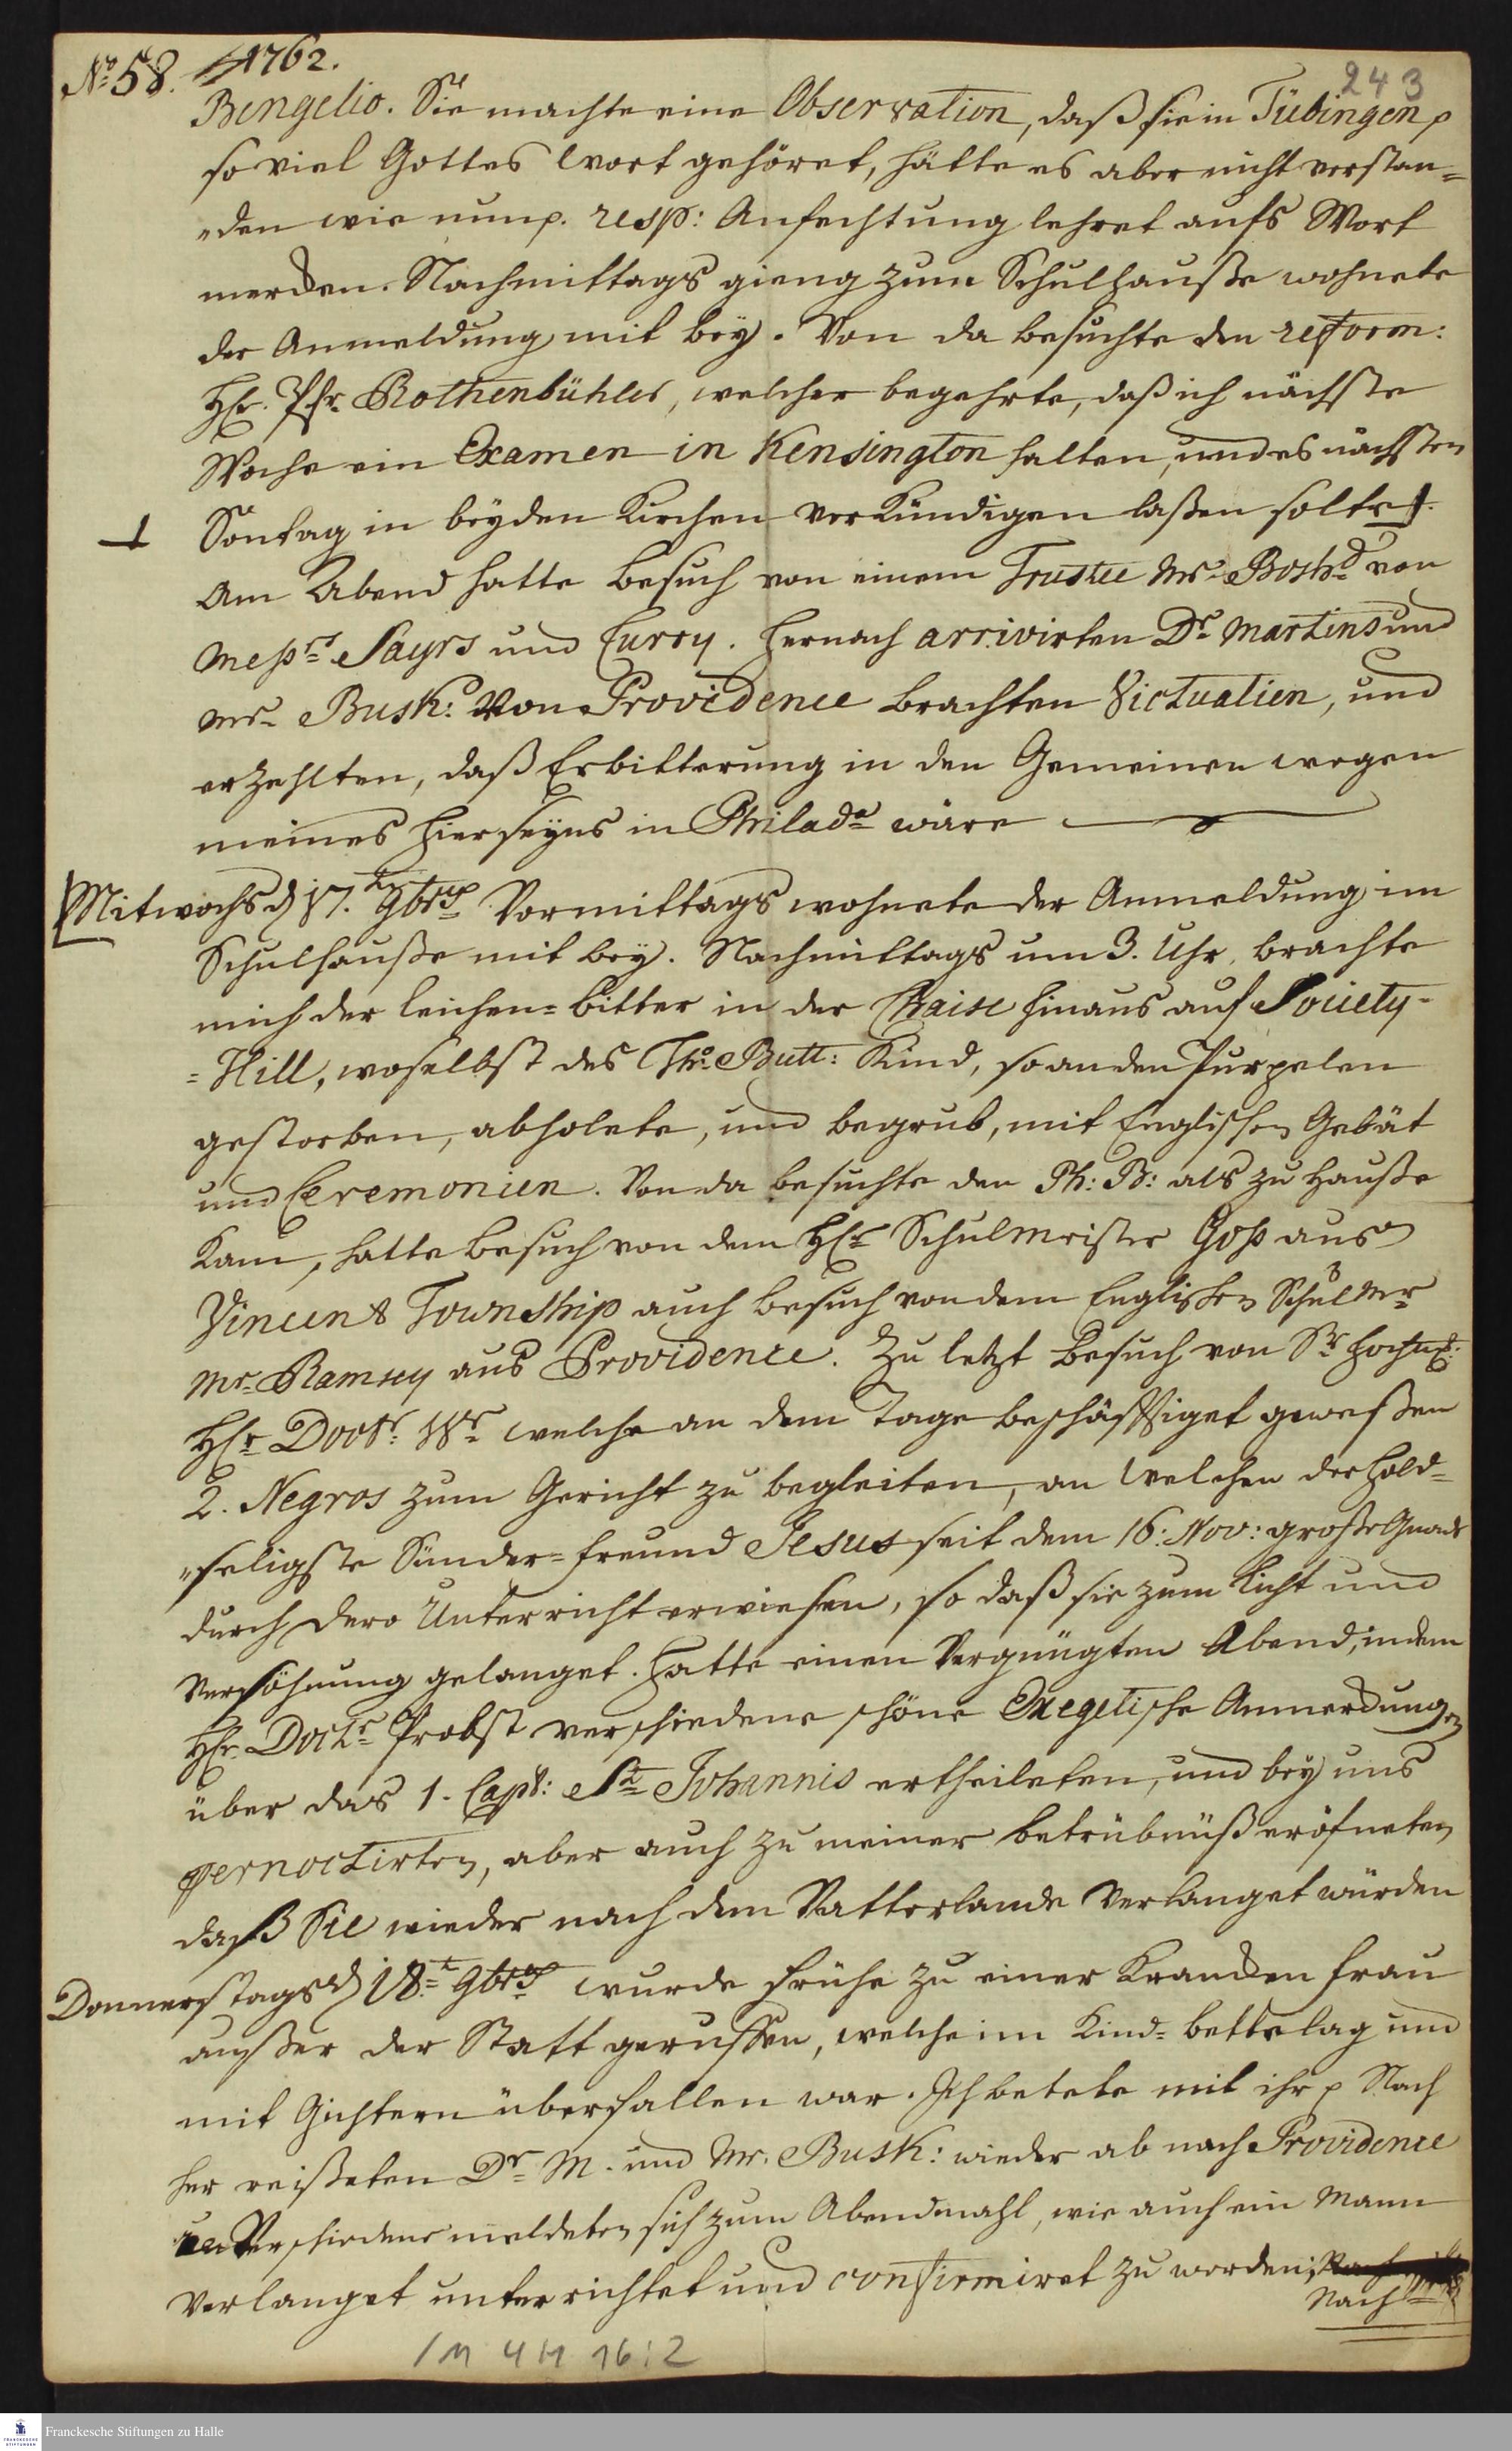 No 58. 1762.
243
Bengelio. Sie machte eine Observation, daß sie in Tübingen p
so viel Gottes Wort gehöret, hätte es aber nicht verstan=
„den wie nun p. resp: Anfechtung lehret aufs Wort
merken. Nachmittags gieng zum Schulhauße wohnete
der Anmeldung mit bey. Von da besuchte den reform:
HE. Pfr. Rothenbühler, welcher begehrte, daß ich nächste
Woche ein Examen in Kensington halten, und es nächsten
Sontag in beyden Kirchen verkündigen laßen solte.
Am Abend hatte Besuch von einem Trustee Mr. Boshd von
Meßrs Sayrs und Curry. Hernach arrivirten Dr. Martins und
Mr. Busk: von Providence brachten Victualien, und
erzehlten, daß Erbitterung in den Gemeinen wegen
meines Hierseyns in Philada wäre
Mitwochs d 17. 9bris Vormittags wohnete der Anmeldung im
Schulhauße mit bey. Nachmittags um 3. Uhr, brachte
mich der Leichen=bitter in der Chaise hinaus auf Society-
=Hill, woselbst des Tho: Butt: Kind, so an den Purpelen
gestorben, abholete, und begrub, mit Englischen Gebät
und Ceremonien. Von da besuchte den Ph: B: als zu Hauße
kam, hatte Besuch von dem HEr Schulmeister Goß aus
Vincent Township auch Besuch von dem Englischen Schulmr
Mr. Ramsey aus Providence. Zu letzt Besuch von Sr
HEr Doctr: Wr welche an dem Tage beschäftiget geweßen
2. Negros zum Gericht zu begleiten, an welchen der hold=
„seligste Sünder=freund Jesus seit dem 16: Nov: große Gnade
durch dero Unterricht erwiesen, so daß sie zum Licht und
Versöhnung gelanget. Hatte einen vergnügten Abend, indem
HEr. Doctr Probst verschiedene schöne Exegetische Anmerckungen
über das 1. Capt: St Johannis ertheileten, und bey uns
pernoctirten, aber auch zu meiner betrübnüß eröfneten
daß Sie wieder nach dem Vatterlande verlanget würden
Donnerstags d 18t 9bris wurde frühe zu einer krancken frau
außer der Statt geruffen, welche im Kind=bette lag und
mit Gichtern überfallen war. Ich betete mit ihr p Nach
her reißeten Dr M. und Mr. Busk: wieder ab nach Providence
Verschiedene meldeten sich zum Abendmahl, wie auch ein Mann
verlanget unterrichtet und confirmiret zu werden;
Nach
/M 4H 16:2
Franckesche Stiftungen zu Halle